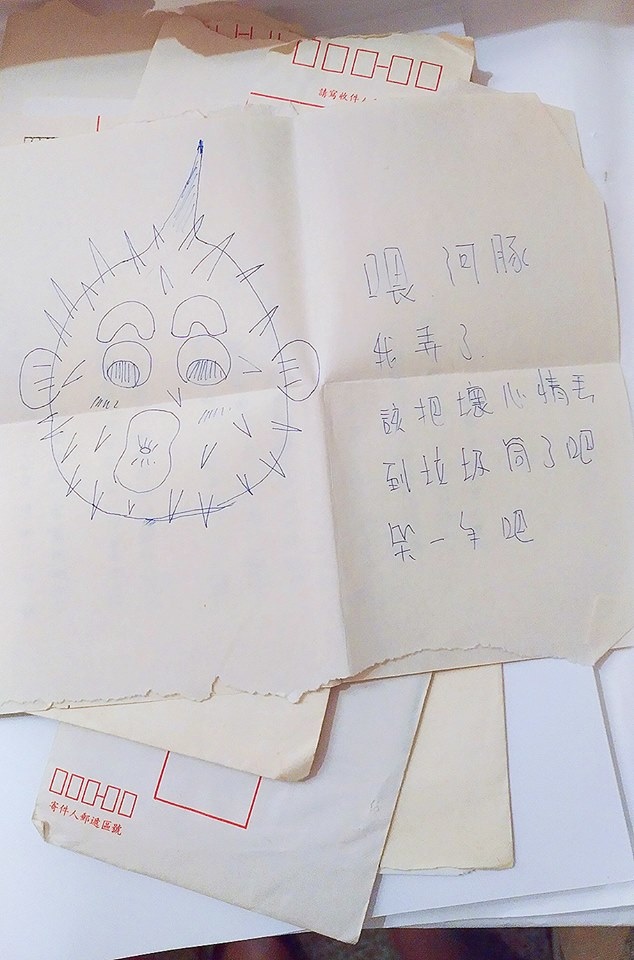 請寫收件人
喂、河豚
我弄了.
該把壞心情丟
到垃圾筒了吧
一 吧
寄件人郵遞區號